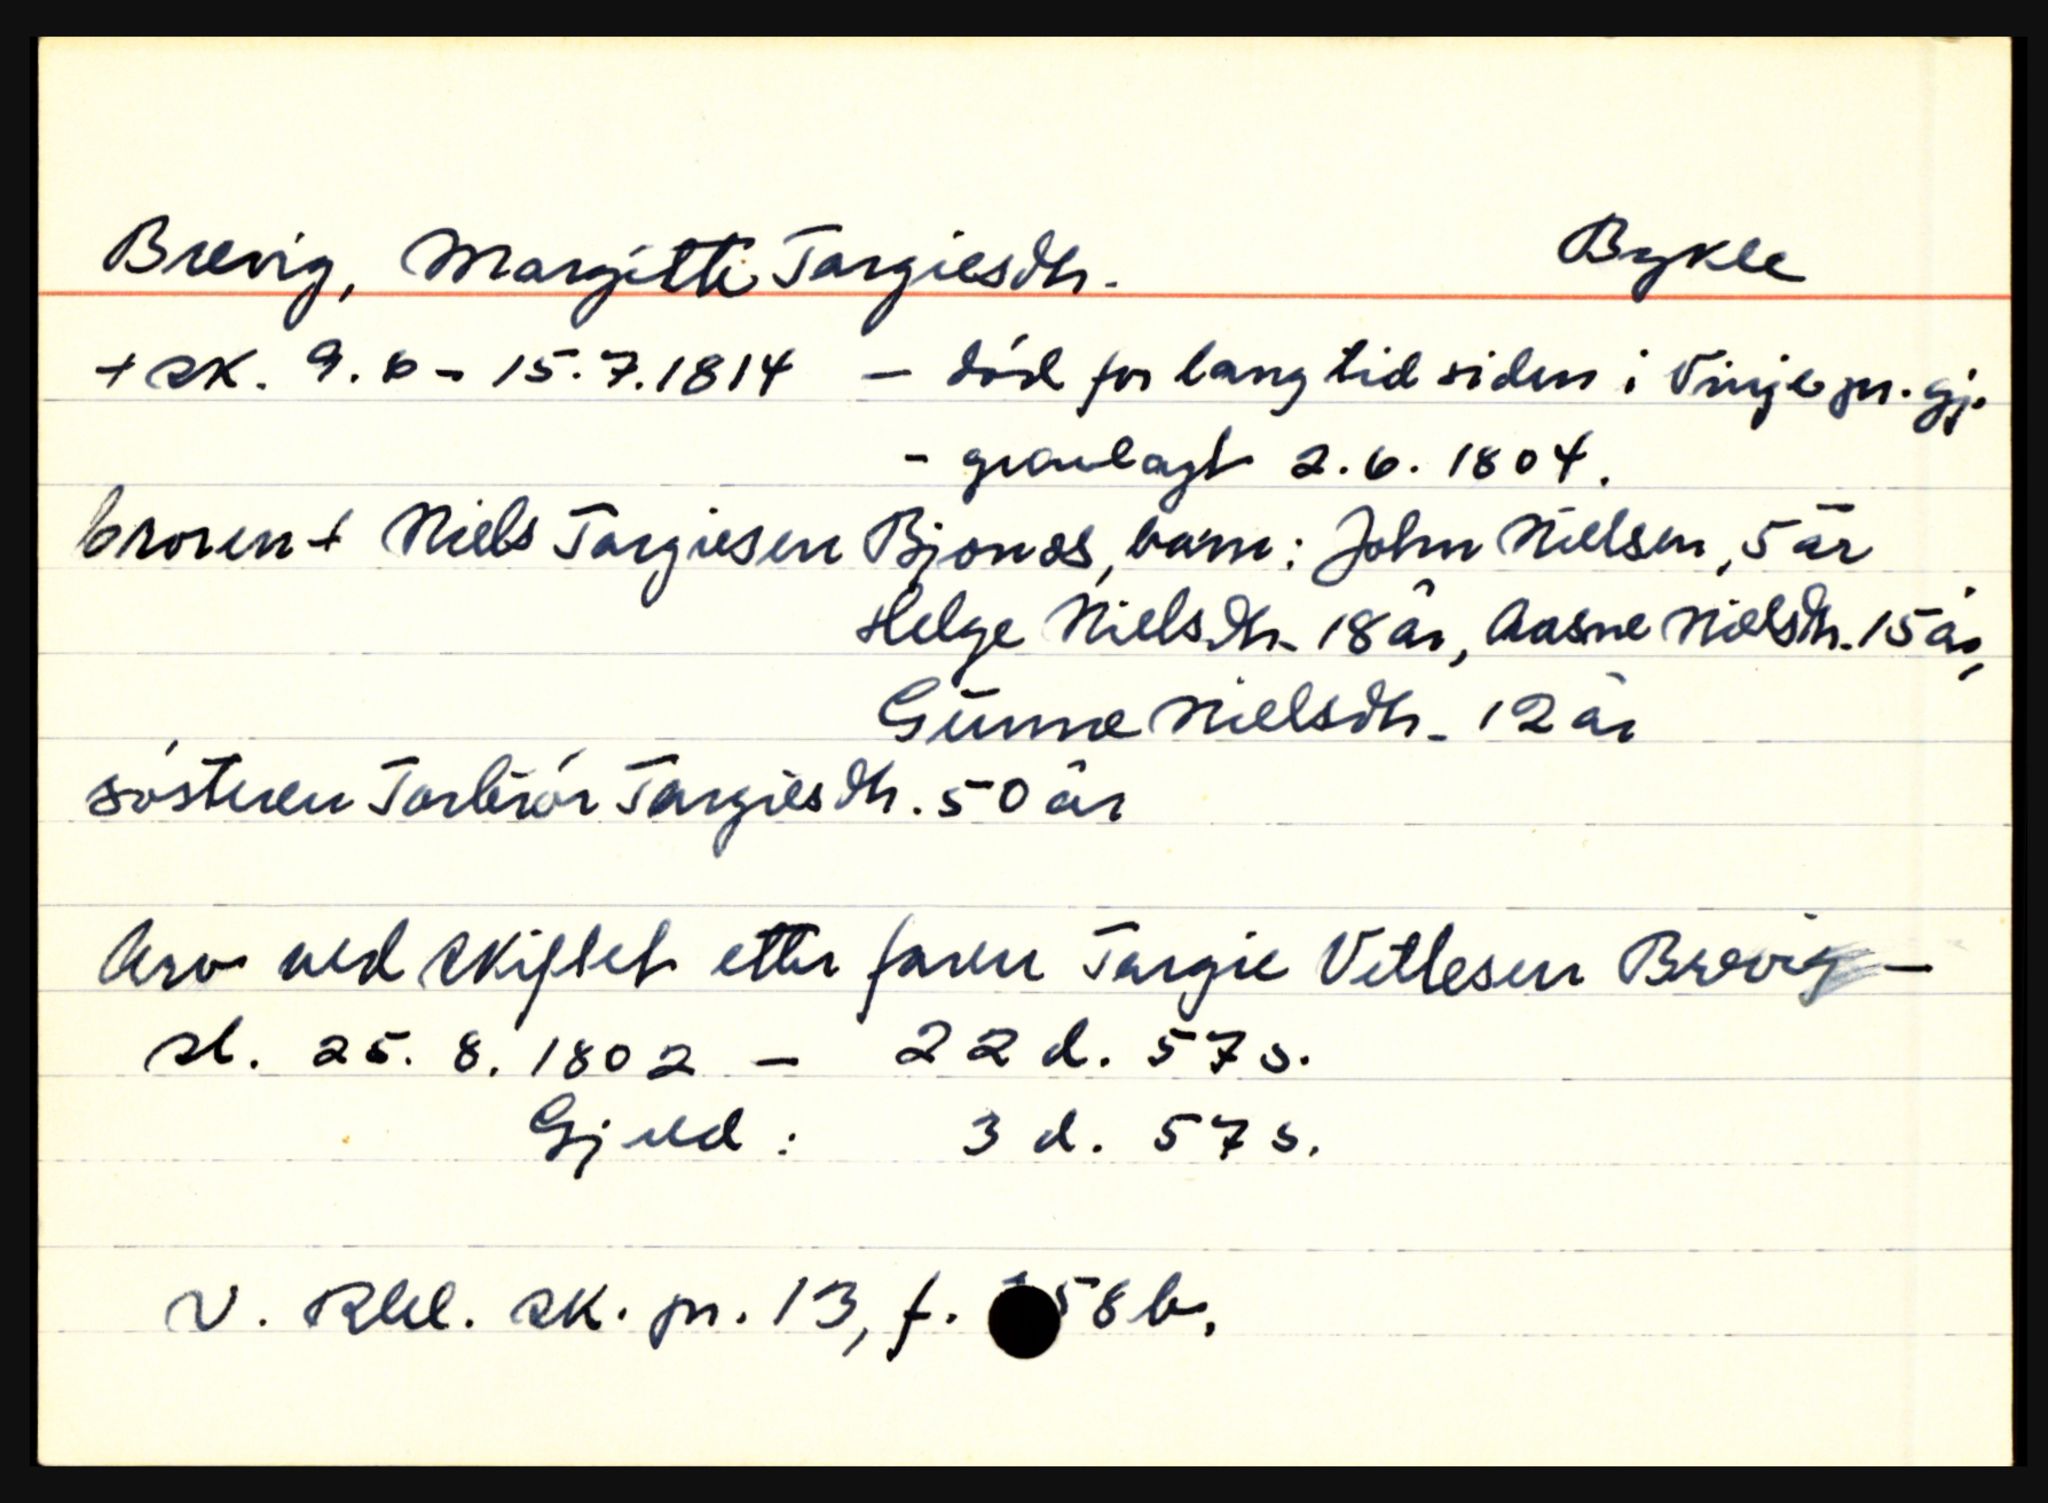 Brevig, Margitte Targiesdtr. Bykle
+ sk. 9.6 - 15.7.1814 - død for lang tid siden i Vinje pr.gj.
- gravlagt 2.6.1804.
broren + Niels Targiesen Bjones, barn: John Nielsen, 5 år
Helge Nielsdtr. 18 år, Aasne Nielsdtr. 15 år,
Gunne Nielsdtr. 12 år
søsteren Torbiør Targiesdtr. 50 år
Arv ved skiftet etter faren Targie Vetlesen Brevig -
sl. 25. 8. 1802 - 22 d. 57 s.
Gjeld: 3 d. 57 s.
V. Rbl. sk. pr. 13, f. 58 b.